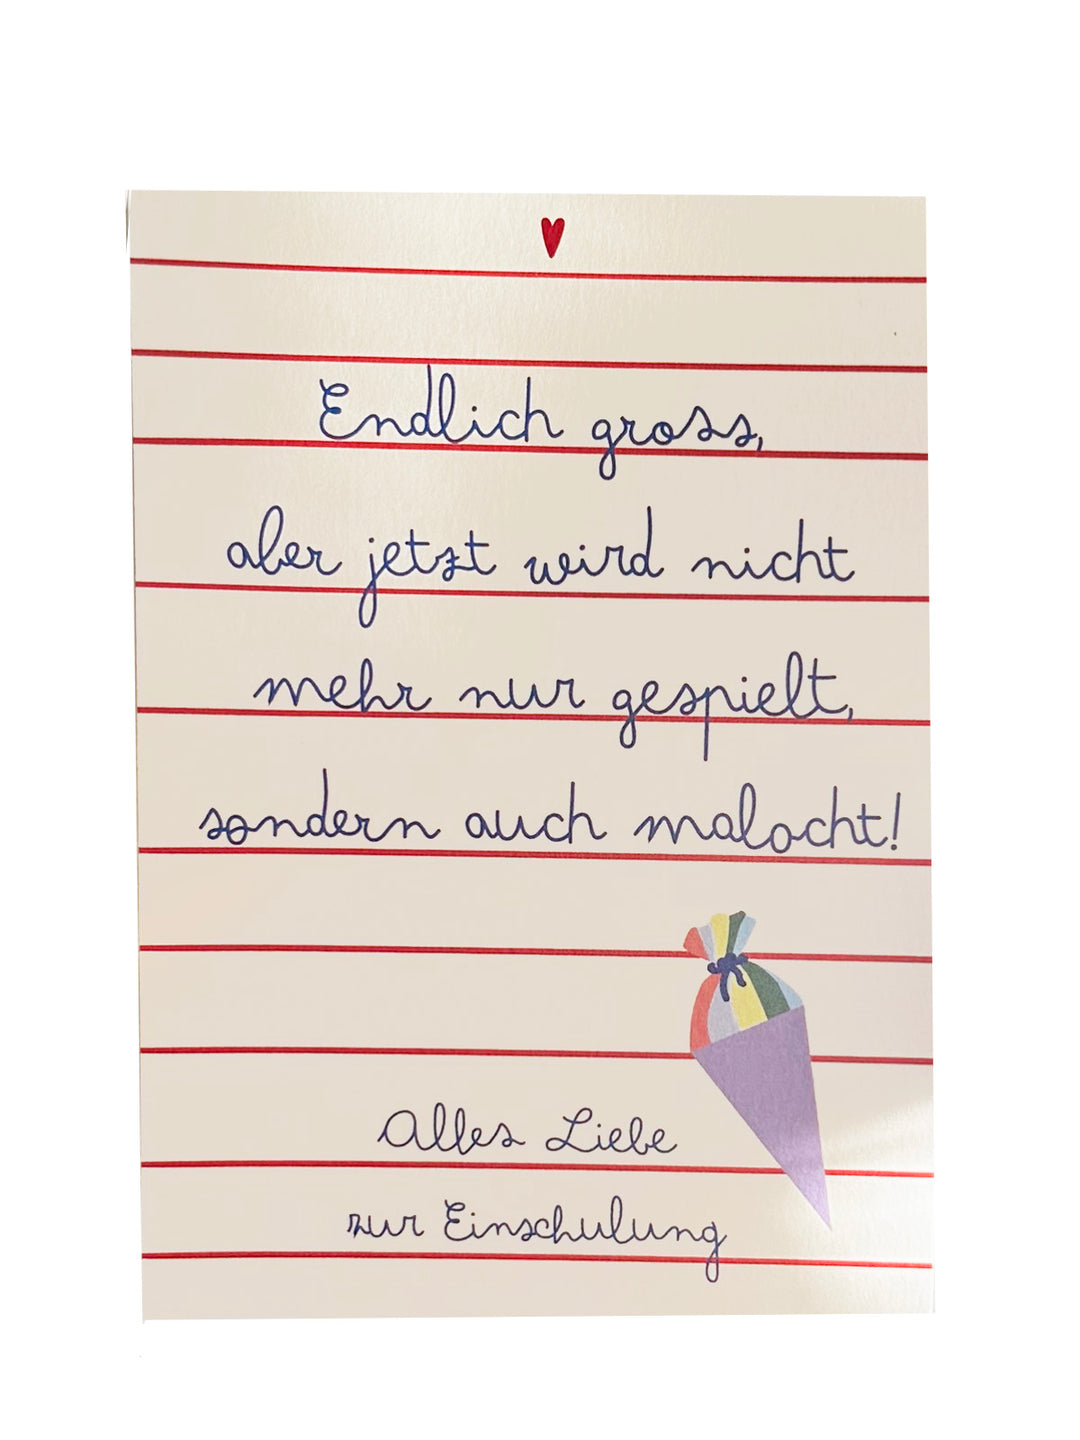 Endlich gross,
aber jetzt wird nicht
mehr nur gespielt,
sondern auch malocht!
Alles Liebe
zur Einschulung